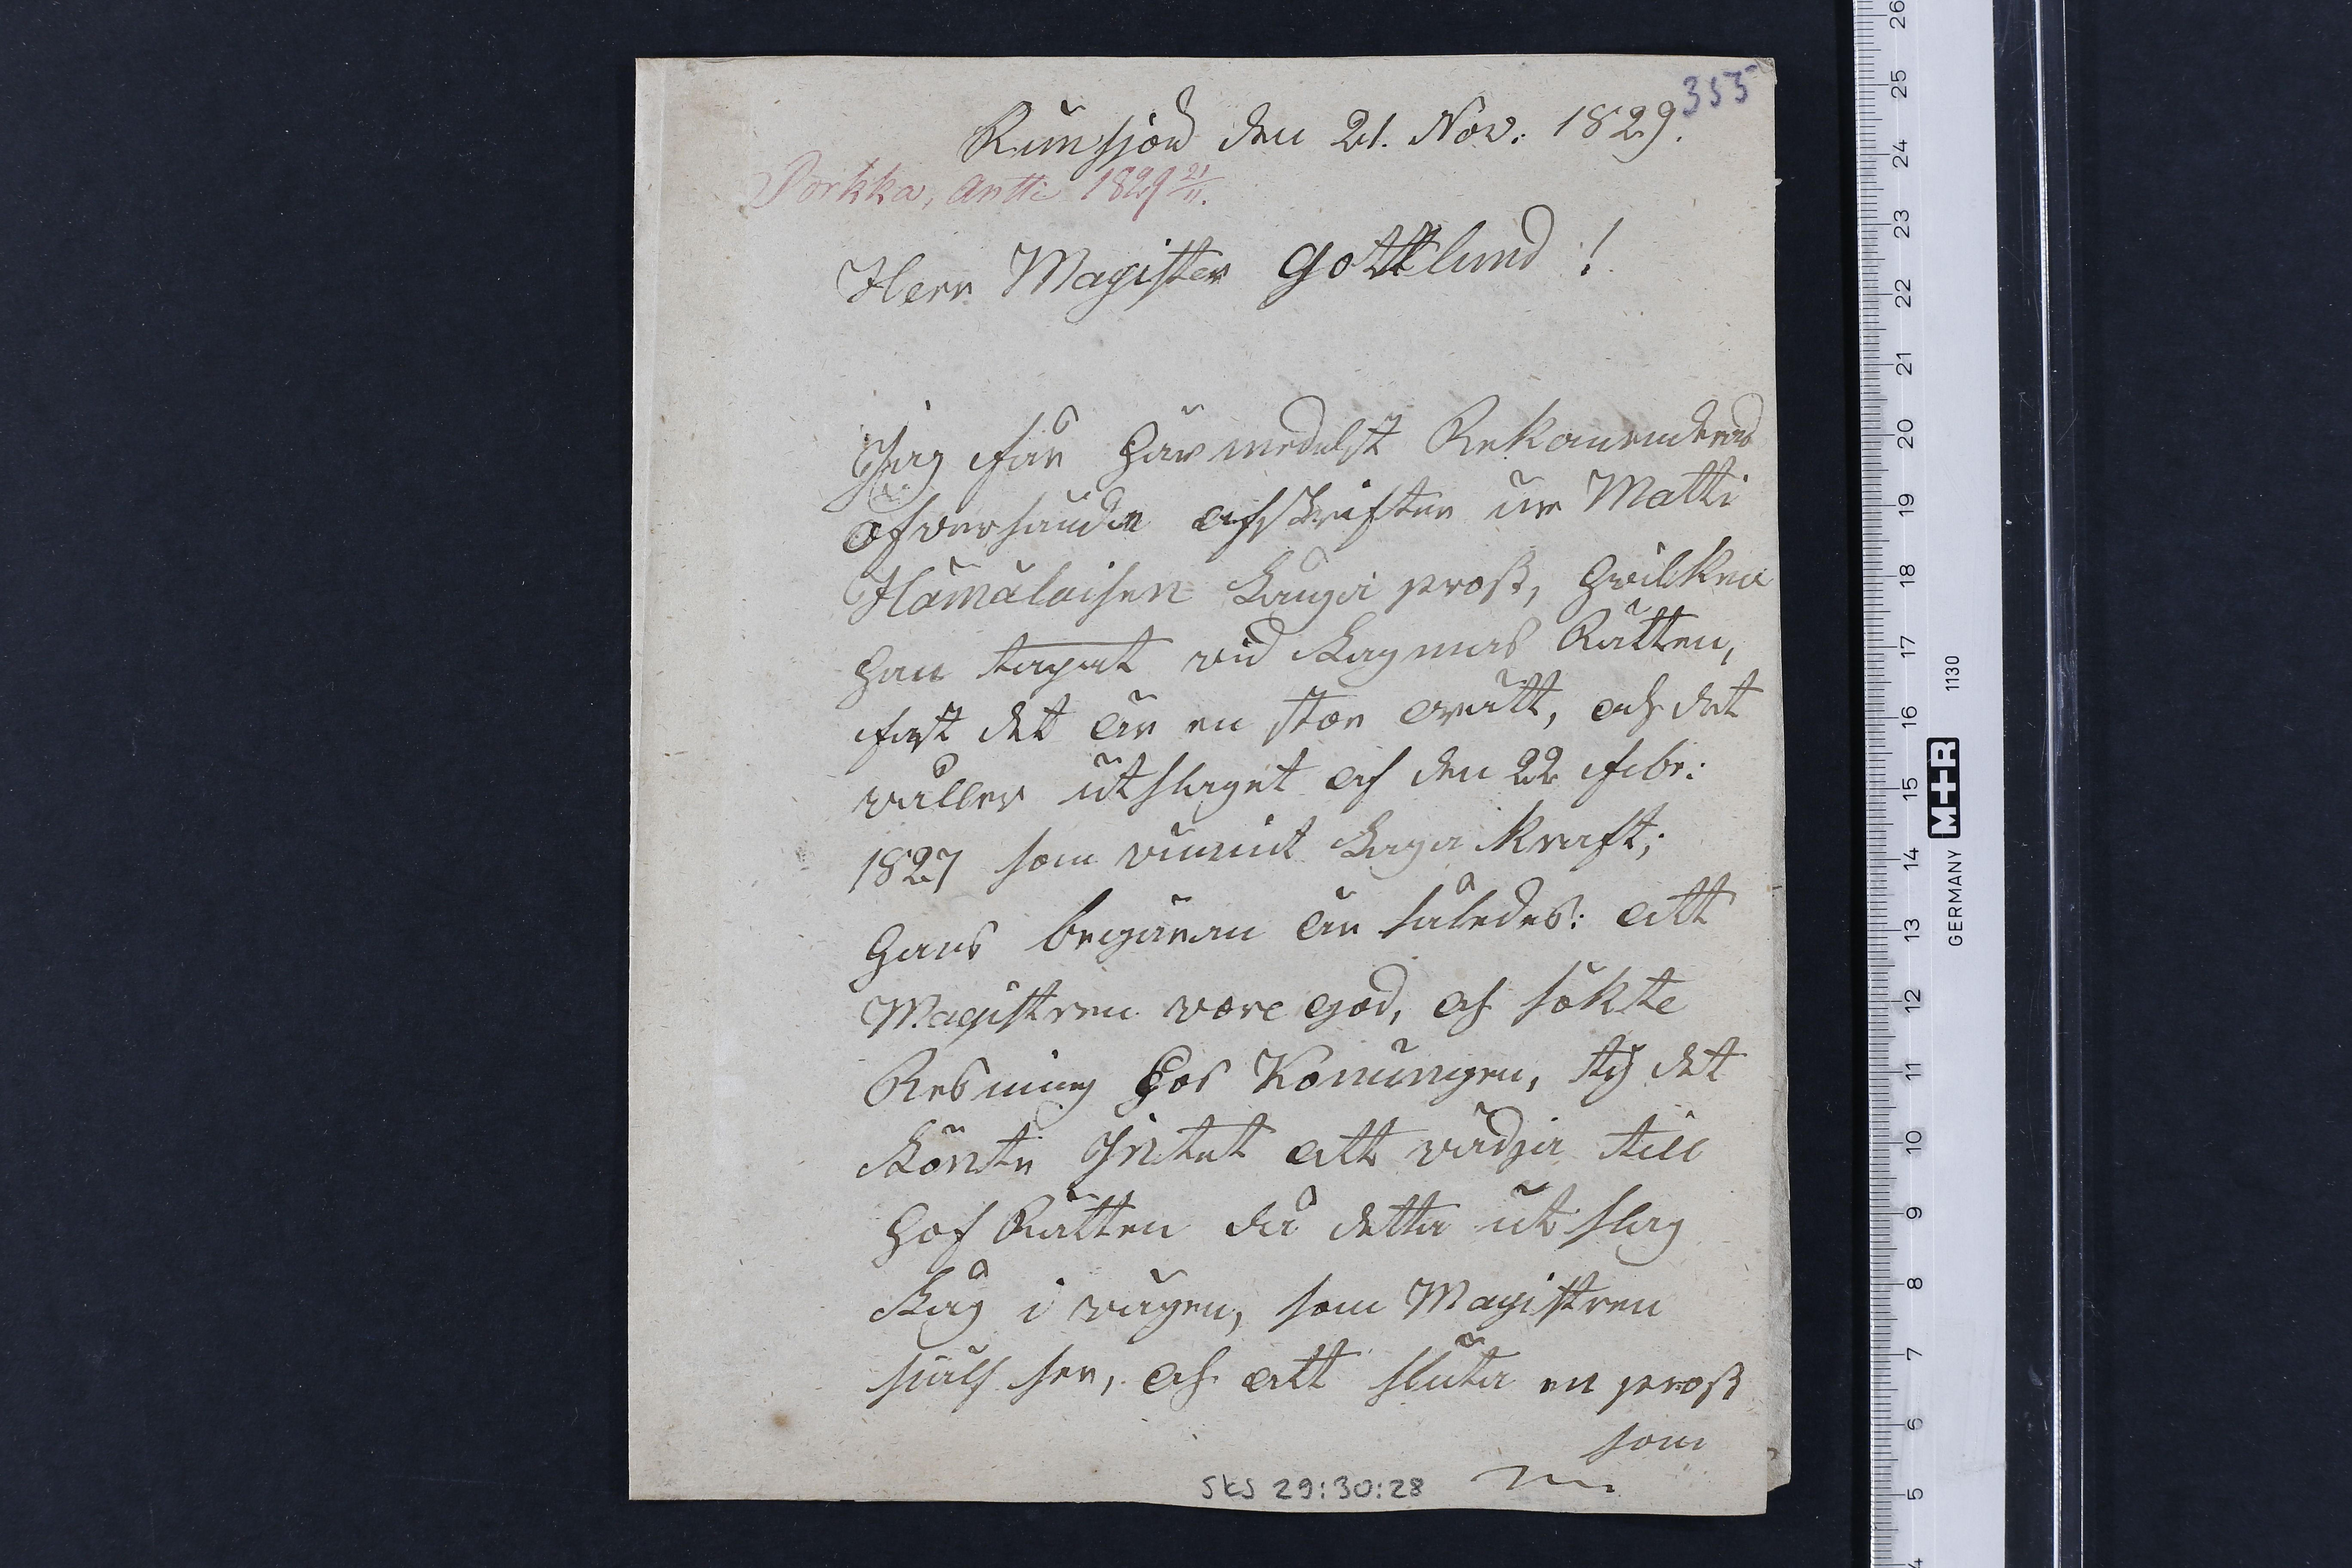 353
Runsjön den 21. Nov: 1829.
Porkka, Antti 1829 21/11.
Herr Magister Gottlund!
Jag får härmedelst Rekomendera
öfversända afskrifter ur Matti
Hämäläisen Länga pross, hvilken
han tapat vid Lagmas Rätten,
fast det är en stor orätt, och det
våller utslaget af den 22 Febr:
1827 som vunnit Laga kraft;
hans begäran är således: att
Magistren vore god, och sökte
Resning hos Konungen, ty det
Lönte Intet att vädja till
Hof Rätten då detta utslag
Låg i vägen, som Magistren
siälf ser, och att sluta en pross
som
SKS 29:30:28
26
25
24
23
22
21
20
19
18
17
16
15
14
13
12
11
10
9
8
7
6
5
4
GERMANY M+R 1130